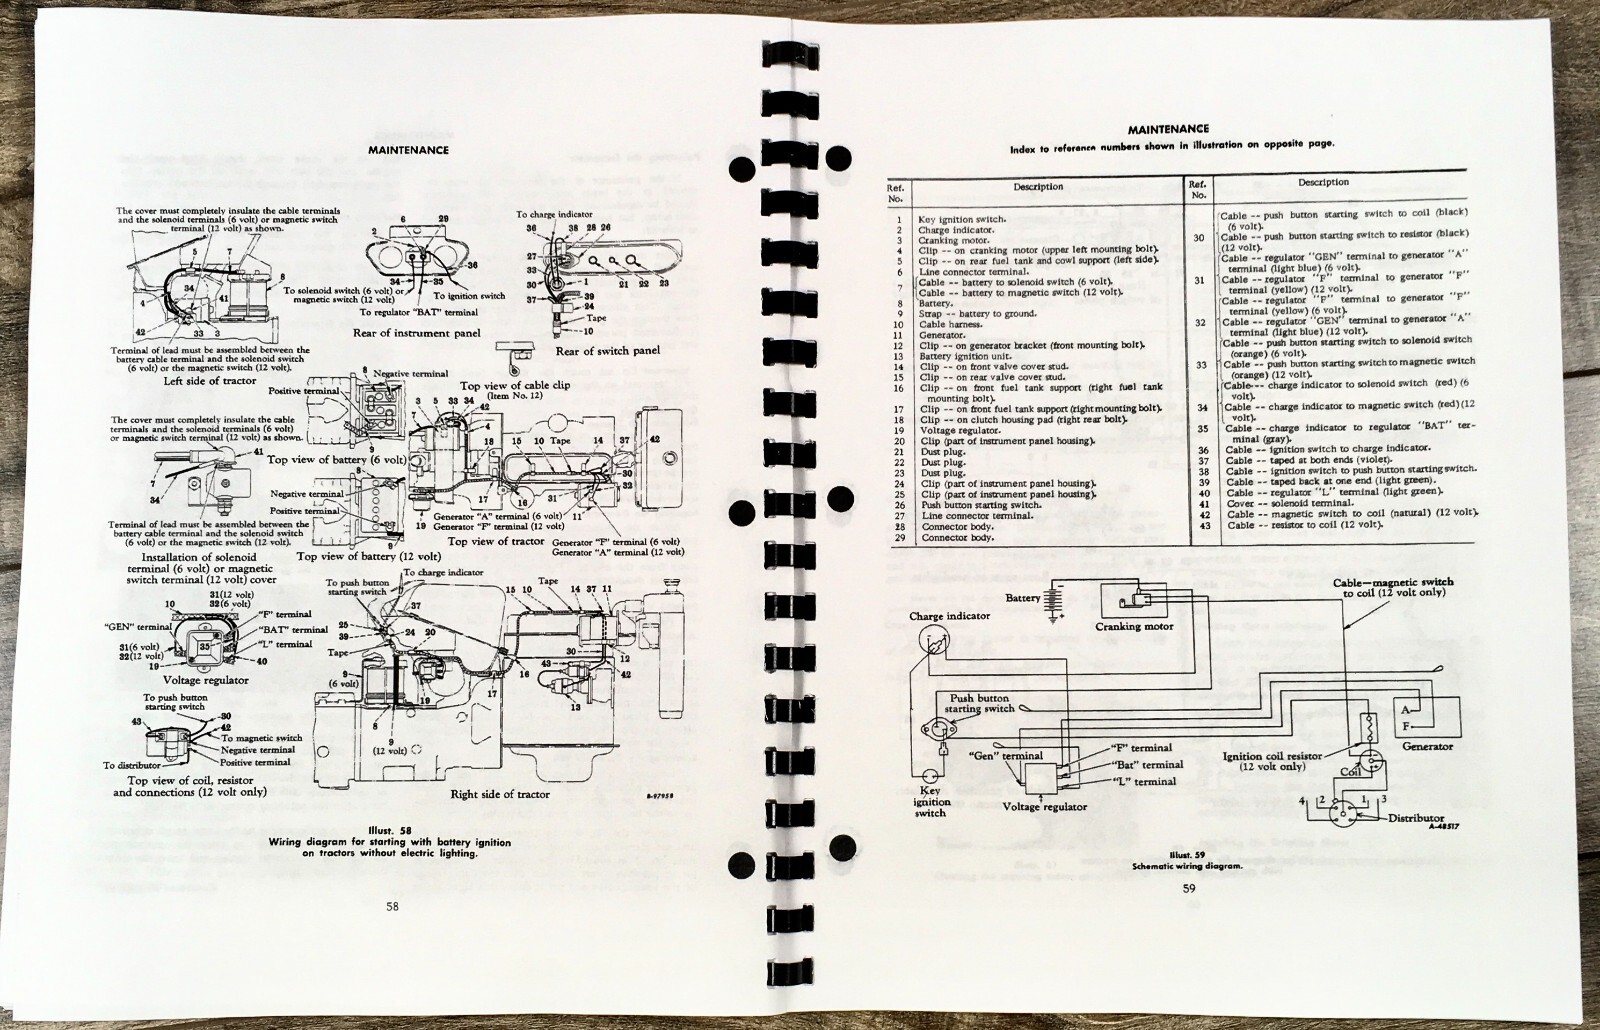 MAINTENANCE
The cover must completely insulate the cable terminals
and the solenoid terminals (6 volt) or magnetic switch
terminal (12 volt) as shown.
5
7
8
4
34
41
42
33
3
Terminal of lead must be assembled between the
battery cable terminal and the solenoid switch
(6 volt) or the magnetic switch (12 volt).
Left side of tractor
6
29
2
36
34
35
To solenoid switch (6 volt) or
magnetic switch (12 volt)
To ignition switch
To regulator "BAT" terminal
Rear of instrument panel
To charge indicator
36
38 28 26
27
33
30
1
21 22 23
37
39
24
Tape
10
Rear of switch panel
Top view of cable clip
(Item No. 12)
8
Negative terminal
Positive terminal
9
Top view of battery (6 volt)
The cover must completely insulate the cable
terminals and the solenoid terminals (6 volt)
or magnetic switch terminal (12 volt) as shown.
41
7
34
Terminal of lead must be assembled between the
battery cable terminal and the solenoid switch
(6 volt) or the magnetic switch (12 volt).
Installation of solenoid
terminal (6 volt) or magnetic
switch terminal (12 volt) cover
8
Negative terminal
Positive terminal
9
Top view of battery (12 volt)
3 5 33 34
42
7
4
18
15 10 Tape 14 37 42
30
32
17
16
31
11
19
Generator "A" terminal (6 volt)
Generator "F" terminal (12 volt)
Top view of tractor
Generator "F" terminal (6 volt)
Generator "A" terminal (12 volt)
31(12 volt)
32(6 volt)
10
"F" terminal
"GEN" terminal
"BAT" terminal
"L" terminal
31(6 volt)
32(12 volt)
35
19
40
Voltage regulator
To push button
starting switch
43
30
42
To magnetic switch
Negative terminal
Positive terminal
To distributor
Top view of coil, resistor
and connections (12 volt only)
To charge indicator
To push button
starting switch
37
25
39
24 20
Tape
15 10 Tape 14 37 11
9
(6 volt)
19
17
16
43
30
12
42
13
8
9
(12 volt)
Right side of tractor
B-97958
Illust. 58
Wiring diagram for starting with battery ignition
on tractors without electric lighting.
58
MAINTENANCE
Index to reference numbers shown in illustration on opposite page.
Ref. No. Description
1 Key ignition switch.
2 Charge indicator.
3 Cranking motor.
4 Clip -- on cranking motor (upper left mounting bolt).
5 Clip -- on rear fuel tank and cowl support (left side).
6 Line connector terminal.
7 Cable -- battery to solenoid switch (6 volt).
Cable -- battery to magnetic switch (12 volt).
8 Battery.
9 Strap -- battery to ground.
10 Cable harness.
11 Generator.
12 Clip -- on generator bracket (front mounting bolt).
13 Battery ignition unit.
14 Clip -- on front valve cover stud.
15 Clip -- on rear valve cover stud.
16 Clip -- on front fuel tank support (right fuel tank
mounting bolt).
17 Clip -- on front fuel tank support (right mounting bolt).
18 Clip -- on clutch housing pad (right rear bolt).
19 Voltage regulator.
20 Clip (part of instrument panel housing).
21 Dust plug.
22 Dust plug.
23 Dust plug.
24 Clip (part of instrument panel housing).
25 Clip (part of instrument panel housing).
26 Push button starting switch.
27 Line connector terminal.
28 Connector body.
29 Connector body.
Ref. No. Description
30 Cable -- push button starting switch to coil (black)
(6 volt).
Cable -- push button starting switch to resistor (black)
(12 volt).
31 Cable -- regulator "GEN" terminal to generator "A"
terminal (light blue) (6 volt).
Cable -- regulator "F" terminal to generator "F"
terminal (yellow) (12 volt).
32 Cable -- regulator "F" terminal to generator "F"
terminal (yellow) (6 volt).
Cable -- regulator "GEN" terminal to generator "A"
terminal (light blue) (12 volt).
33 Cable -- push button starting switch to solenoid switch
(orange) (6 volt).
Cable -- push button starting switch to magnetic switch
(orange) (12 volt).
34 Cable--- charge indicator to solenoid switch (red) (6
volt).
Cable -- charge indicator to magnetic switch (red) (12
volt).
35 Cable -- charge indicator to regulator "BAT" ter-
minal (gray).
36 Cable -- ignition switch to charge indicator.
37 Cable -- taped at both ends (violet).
38 Cable -- ignition switch to push button starting switch.
39 Cable -- taped back at one end (light green).
40 Cable -- regulator "L" terminal (light green).
41 Cover -- solenoid terminal.
42 Cable -- magnetic switch to coil (natural) (12 volt).
43 Cable -- resistor to coil (12 volt).
Battery
Cranking motor
Cable—magnetic switch
to coil (12 volt only)
Charge indicator
Push button
starting switch
"Gen" terminal
"F" terminal
"Bat" terminal
"L" terminal
Voltage regulator
Key
ignition
switch
A
F
Generator
Ignition coil resistor
(12 volt only)
Coil
4 2 1 3
Distributor
A-48517
Illust. 59
Schematic wiring diagram.
59